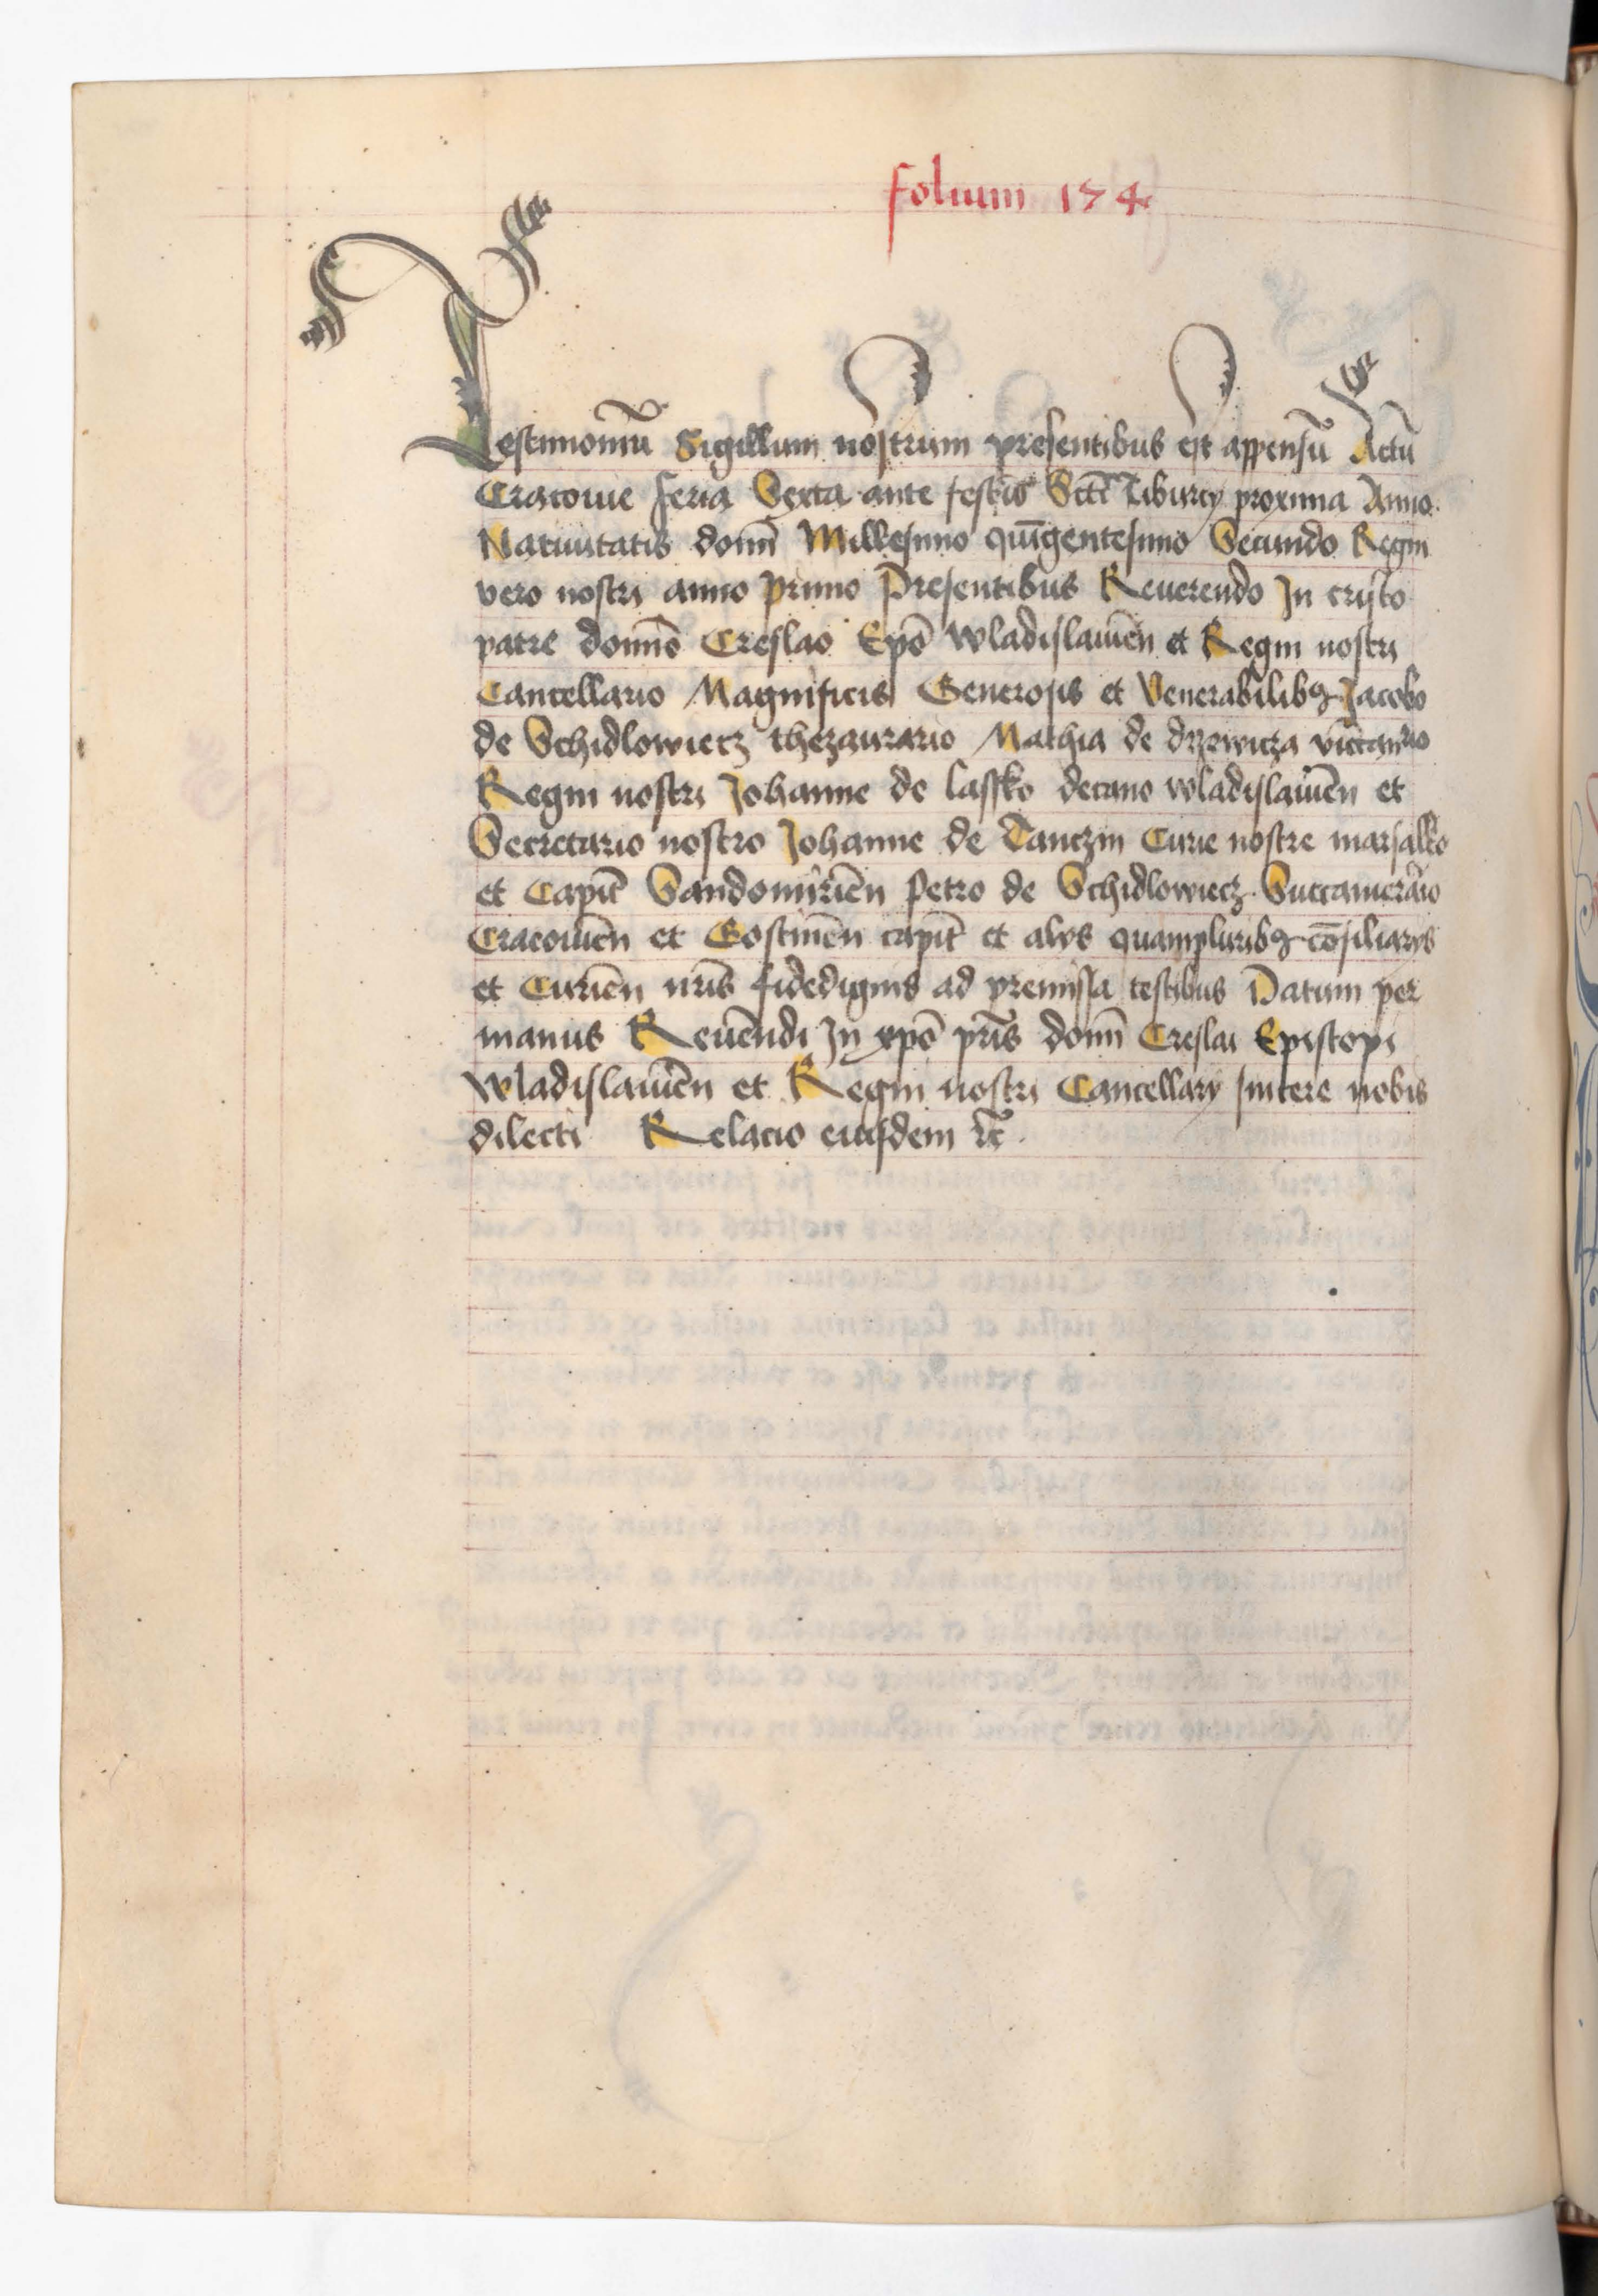 folium 174
Testimoniū Sigillum nostrum presentibus est appensū Actū
Cracovie feria Sexta ante festū Sctī Tiburcy proxima Anno
Nativitatis domī Millesimo quīgentesimo Secundo Regni
vero nostri anno primo Presentibus Reuerendo In cristo
patre domīo Creslao Epō Wladislauiēn et Regni nostri
Cancellario Magnificis Generosis et Venerabilibꝫ Jacobo
de Schidlowiecz thezaurario Mathia de drzewicza vicecancrio
Regni nostri Johanne de lassko decano wladislauiēn et
Secretario nostro Johanne de Tanczin Curie nostre marsalko
et Capit̄ Sandomiriēn Petro de Schidlowiecz Succamerārio
Cracouiēn et Gostinēn capit̄ et alys quampluribꝫ cōsiliarys
et Curiēn nr̄is fidedignis ad premissa testibus Datum per
manus Reuēndi In xpō pr̄is domī Creslai Episcopi
Wladislauiēn et Regni nostri Cancellary sincere nobis
dilecti Relacio eiusdem ⁊c̄